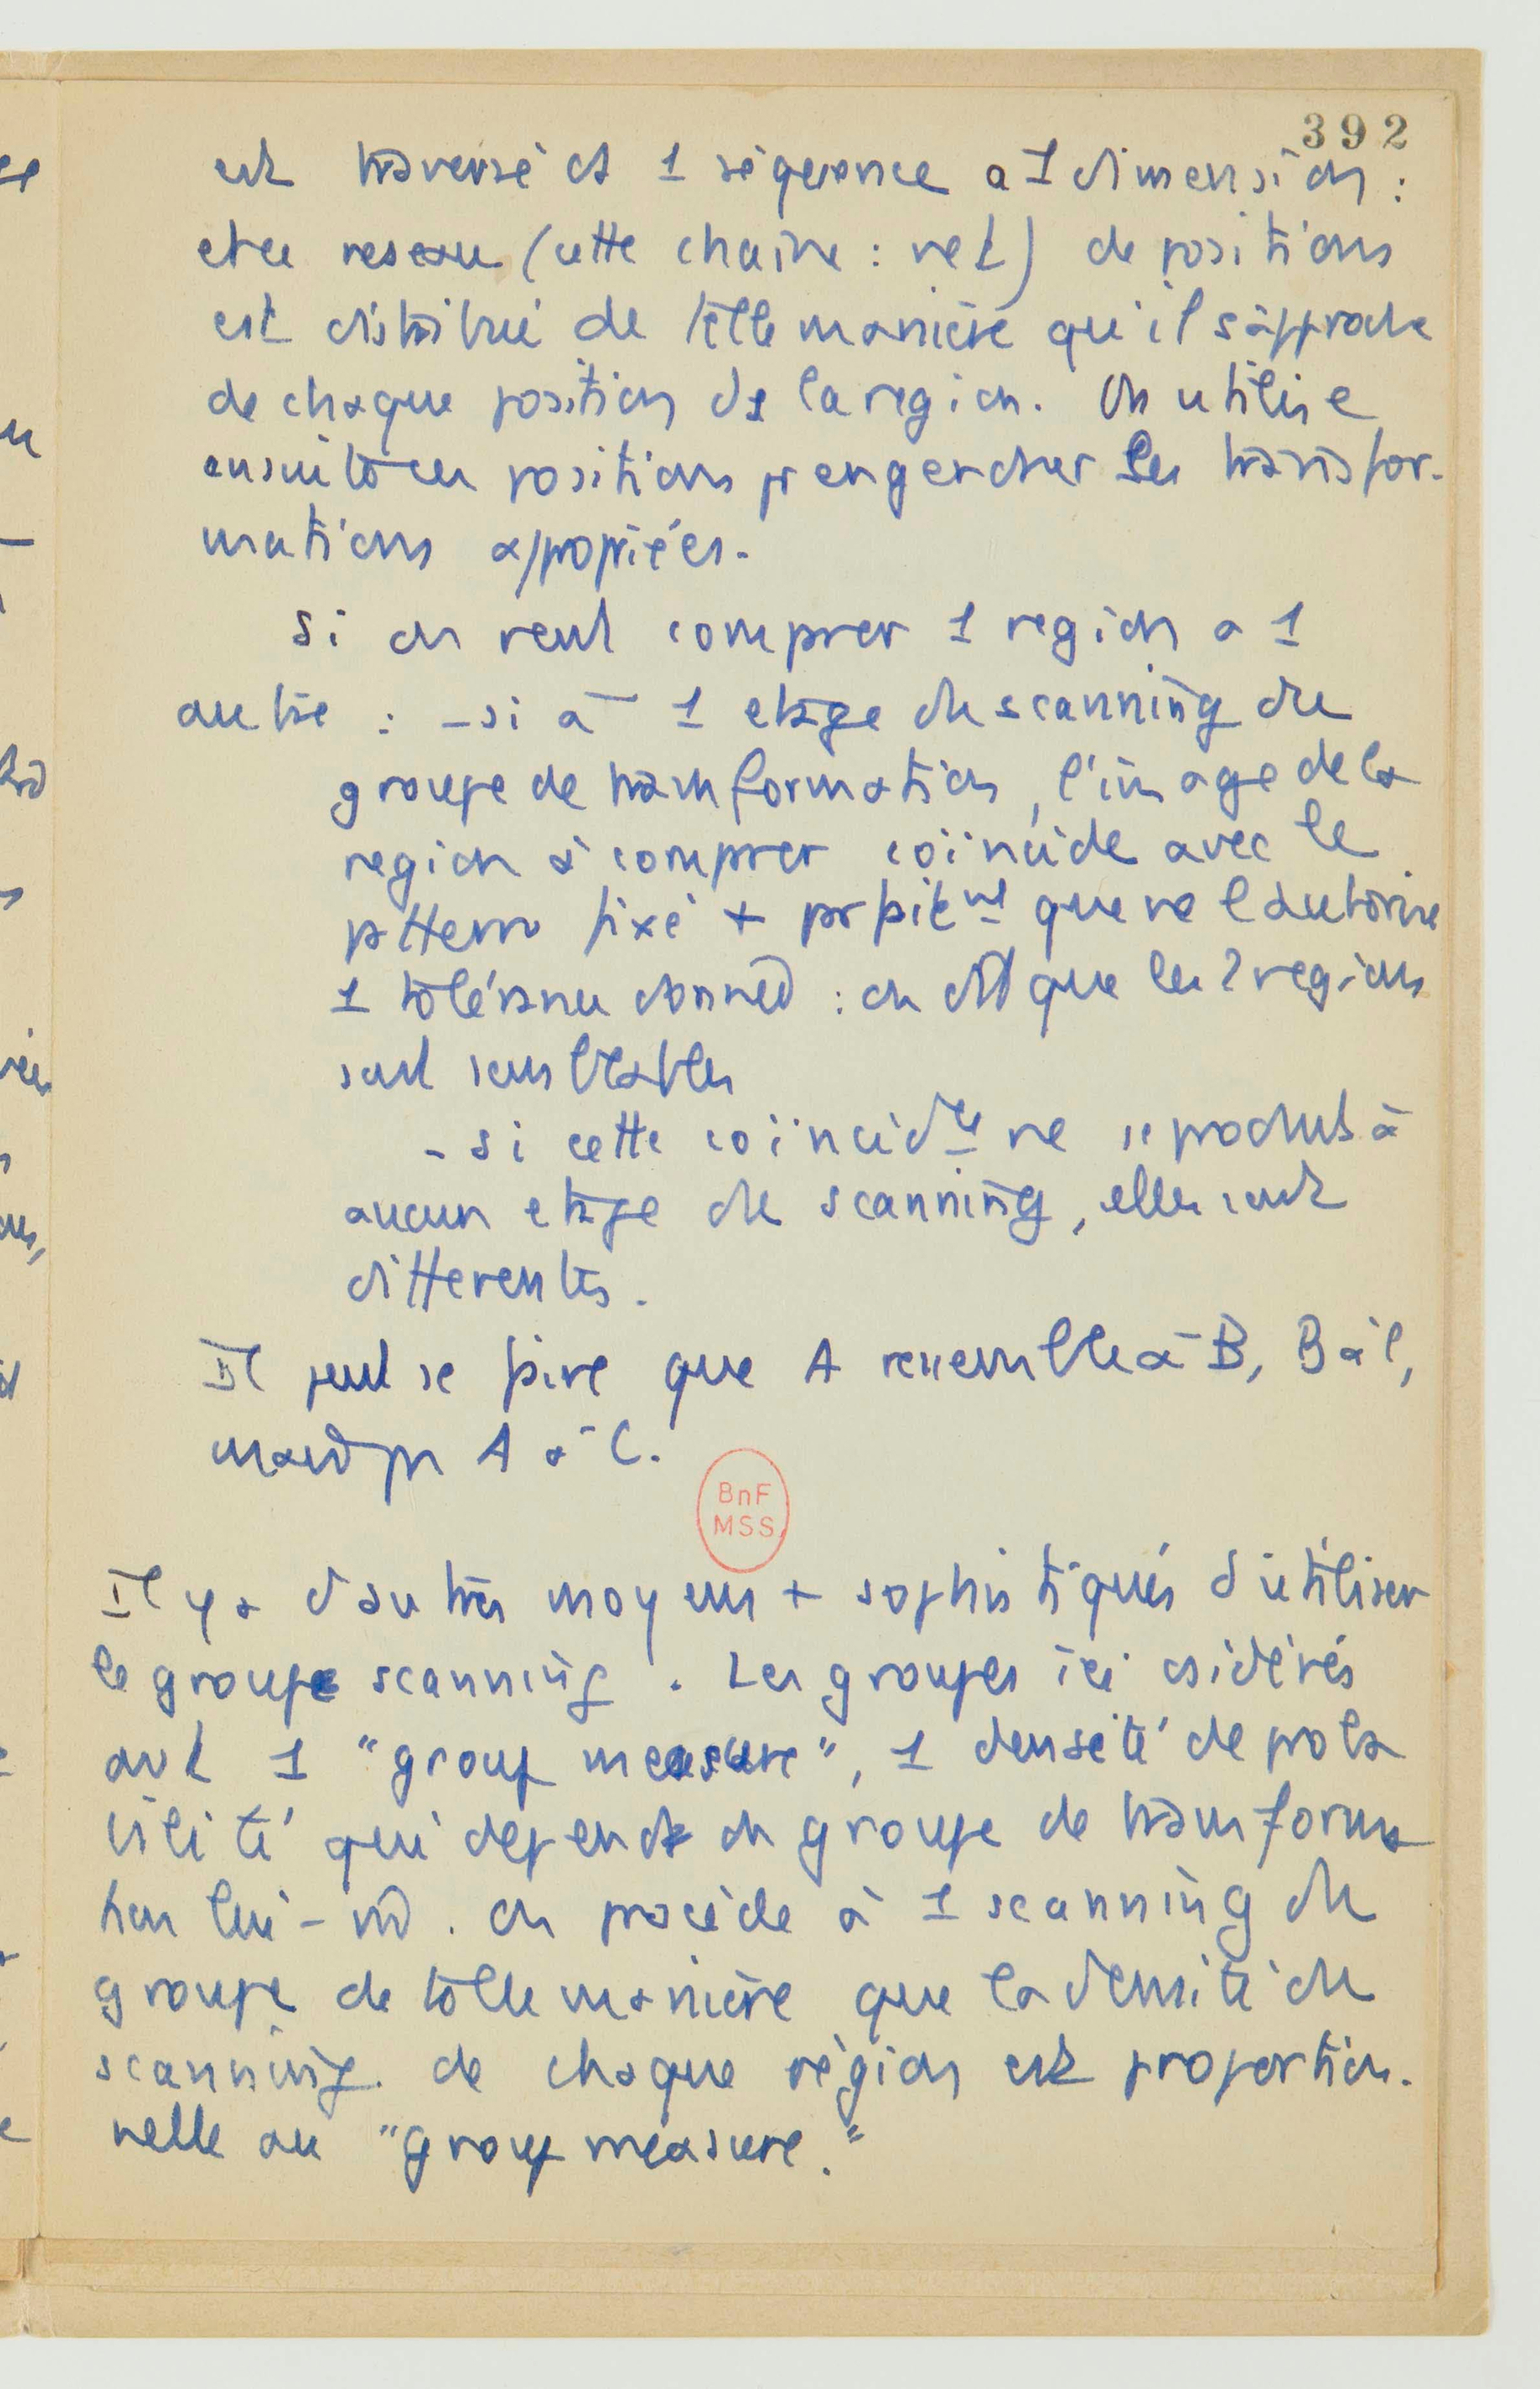 392
est traversé ds 1 séquence a 1 dimension :
et ce reseau (cette chaine : net) de positions
est distribué de telle manière qu'il s'approche
de chaque position de la region. On utilise
ensuite ces positions pr engendrer les transfor-
mations appropriées.
Si on veut comparer 1 region a 1
autre : - si à 1 etage du scanning du
groupe de transformation, l'image de la
region à comparer coïncide avec le
pattern fixé + parfaitnt que ne l'autorise
1 tolérance donnée : on dit que les 2 regions
sont semblables
- si cette coïncidce ne se produit à
aucun etage du scanning, elles sont
differentes.
Il peut se faire que A ressemble à B, B à C,
mais pas A à C.
BnF
MSS
Il y a d'autres moyens + sophistiqués d'utiliser
le groupe scanning. Les groupes ici csidérés
ont 1 "group measure", 1 densité de proba
bilité qui depend du groupe de transforma
tion lui-mê. On procède à 1 scanning du
groupe de telle manière que la densité du
scanning de chaque région est proportion-
nelle au "group measure."